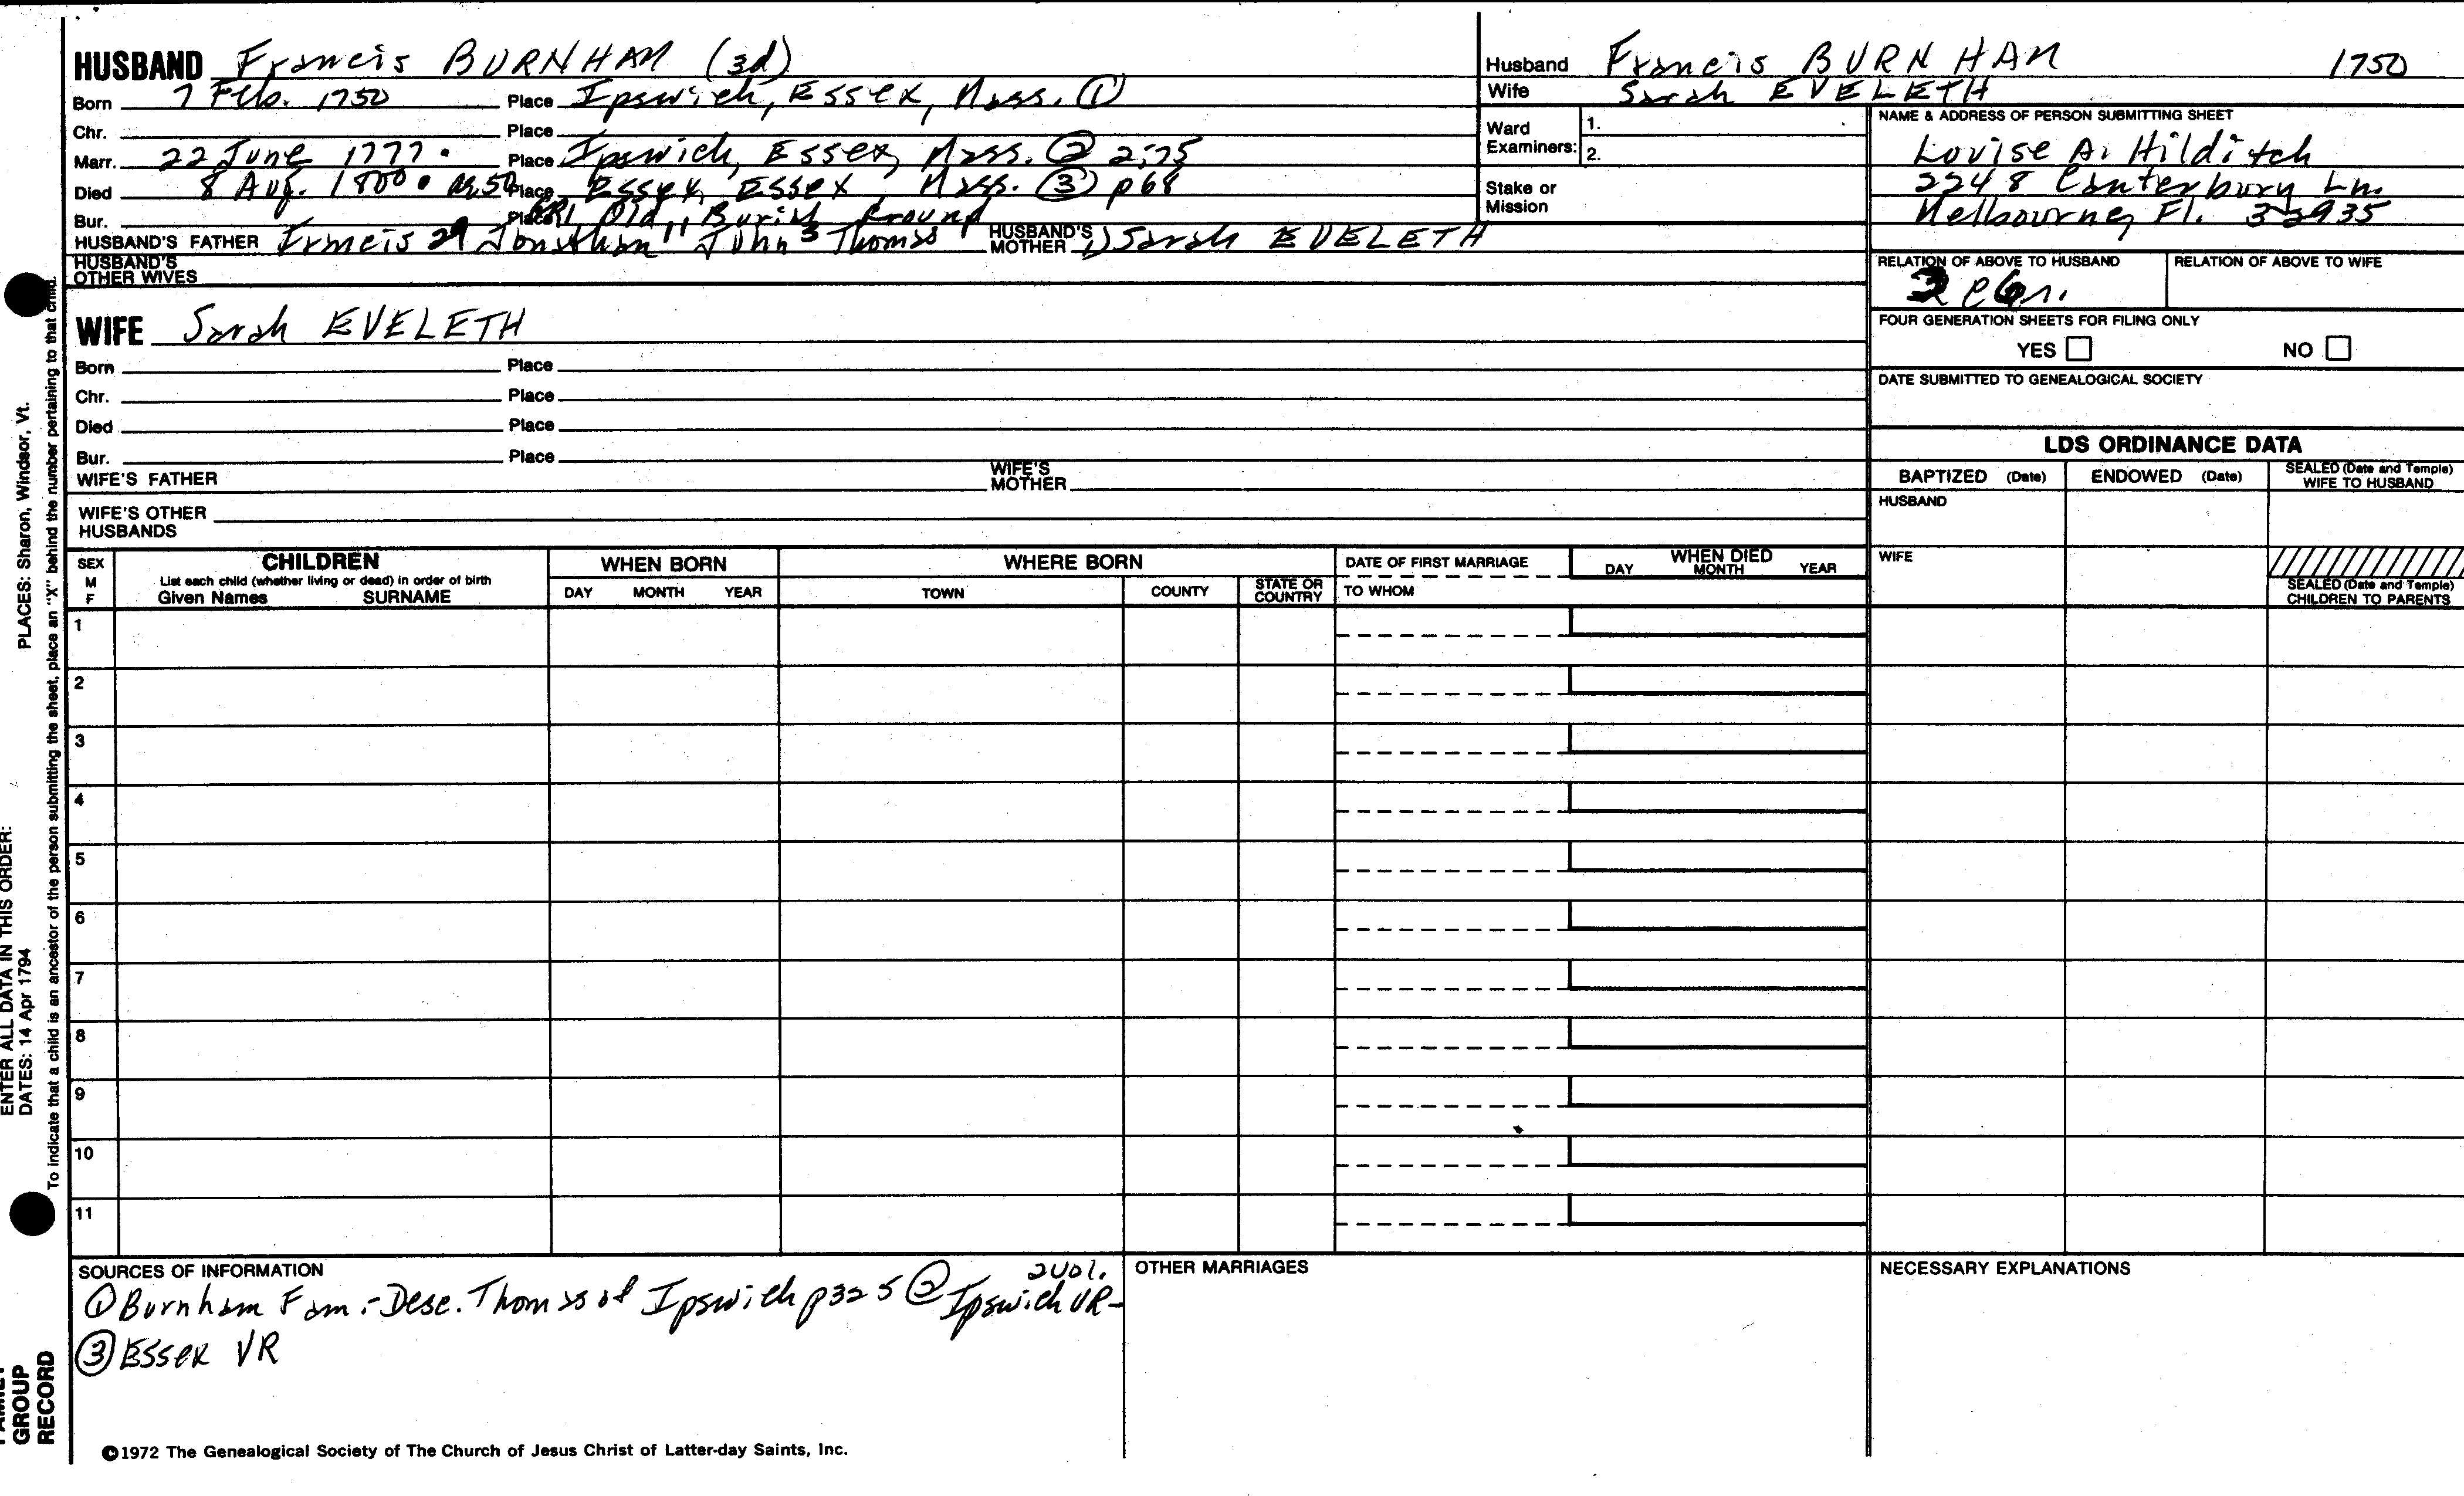 HUSBAND Francis BURNHAM (3d)
Born 7 Feb. 1750 Place Ipswich, Essex, Mass. ①
Chr. Place
Marr. 22 June 1777. Place Ipswich, Essex, Mass. ② 2:75
Died 8 Aug. 1800. ag. 50 Place Essex, Essex Mass. ③ p68
Bur. Place GR1 Old Burial Ground
HUSBAND'S FATHER Francis Jonathan John Thomas HUSBAND'S MOTHER Sarah EVELETH
HUSBAND'S OTHER WIVES
Husband Francis BURNHAM 1750
Wife Sarah EVELETH
Ward Examiners: 1.
2.
Stake or Mission
NAME & ADDRESS OF PERSON SUBMITTING SHEET
Louise A. Hilditch
2248 Canterbury Ln.
Melbourne, Fl. 32935
RELATION OF ABOVE TO HUSBAND RELATION OF ABOVE TO WIFE
FOUR GENERATION SHEETS FOR FILING ONLY
YES NO
DATE SUBMITTED TO GENEALOGICAL SOCIETY
WIFE Sarah EVELETH
Born Place
Chr. Place
Died Place
Bur. Place
WIFE'S FATHER WIFE'S MOTHER
WIFE'S OTHER HUSBANDS
LDS ORDINANCE DATA
BAPTIZED (Date) ENDOWED (Date) SEALED (Date and Temple) WIFE TO HUSBAND
HUSBAND
WIFE
SEALED (Date and Temple) CHILDREN TO PARENTS
SEX M F
CHILDREN
List each child (whether living or dead) in order of birth
Given Names SURNAME
WHEN BORN
DAY MONTH YEAR
WHERE BORN
TOWN COUNTY STATE OR COUNTRY
DATE OF FIRST MARRIAGE
TO WHOM
WHEN DIED
DAY MONTH YEAR
1
2
3
4
5
6
7
8
9
10
11
SOURCES OF INFORMATION
① Burnham Fam.-Desc. Thomas of Ipswich p325 ② Ipswich VR- 2vol.
③ Essex VR
OTHER MARRIAGES
NECESSARY EXPLANATIONS
©1972 The Genealogical Society of The Church of Jesus Christ of Latter-day Saints, Inc.
GROUP
RECORD
ENTER ALL DATA IN THIS ORDER:
DATES: 14 Apr 1794
PLACES: Sharon, Windsor, Vt.
To indicate that a child is an ancestor of the person submitting the sheet, place an "X" behind the number pertaining to that child.